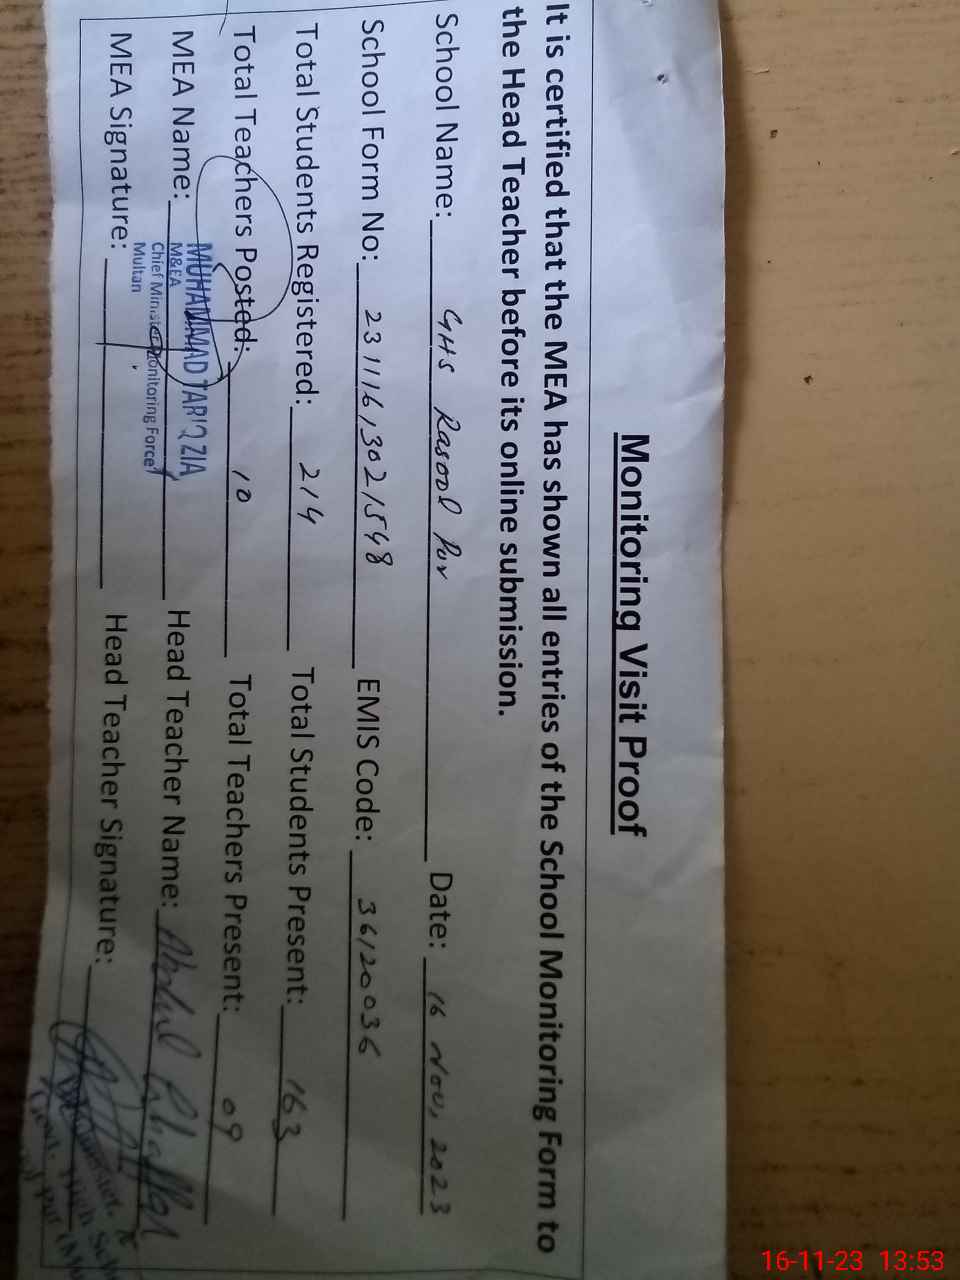 Monitoring Visit Proof
It is certified that the MEA has shown all entries of the School Monitoring Form to
the Head Teacher before its online submission.
School Name: GHS Rasool Pur Date: 16 Nov, 2023
School Form No: 231116,3021548 EMIS Code: 36120036
Total Students Registered: 214 Total Students Present: 163
Total Teachers Posted: 10 Total Teachers Present: 09
MEA Name: MUHAMMAD TARIQ ZIA Head Teacher Name: Abdul Ghaffar
M&EA
Chief Minister Monitoring Force
Multan
MEA Signature: Head Teacher Signature:
Govt. High
16-11-23 13:53